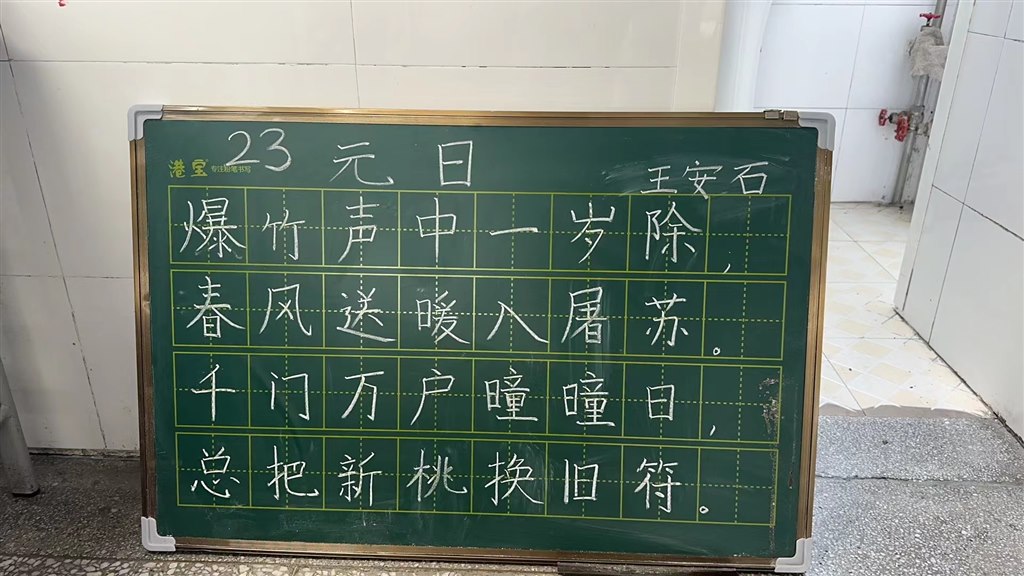 港宝 专注粉笔书写 23 元日
王安石
爆竹声中一岁除,
春风送暖入屠苏。
千门万户曈曈日,
总把新桃换旧符。